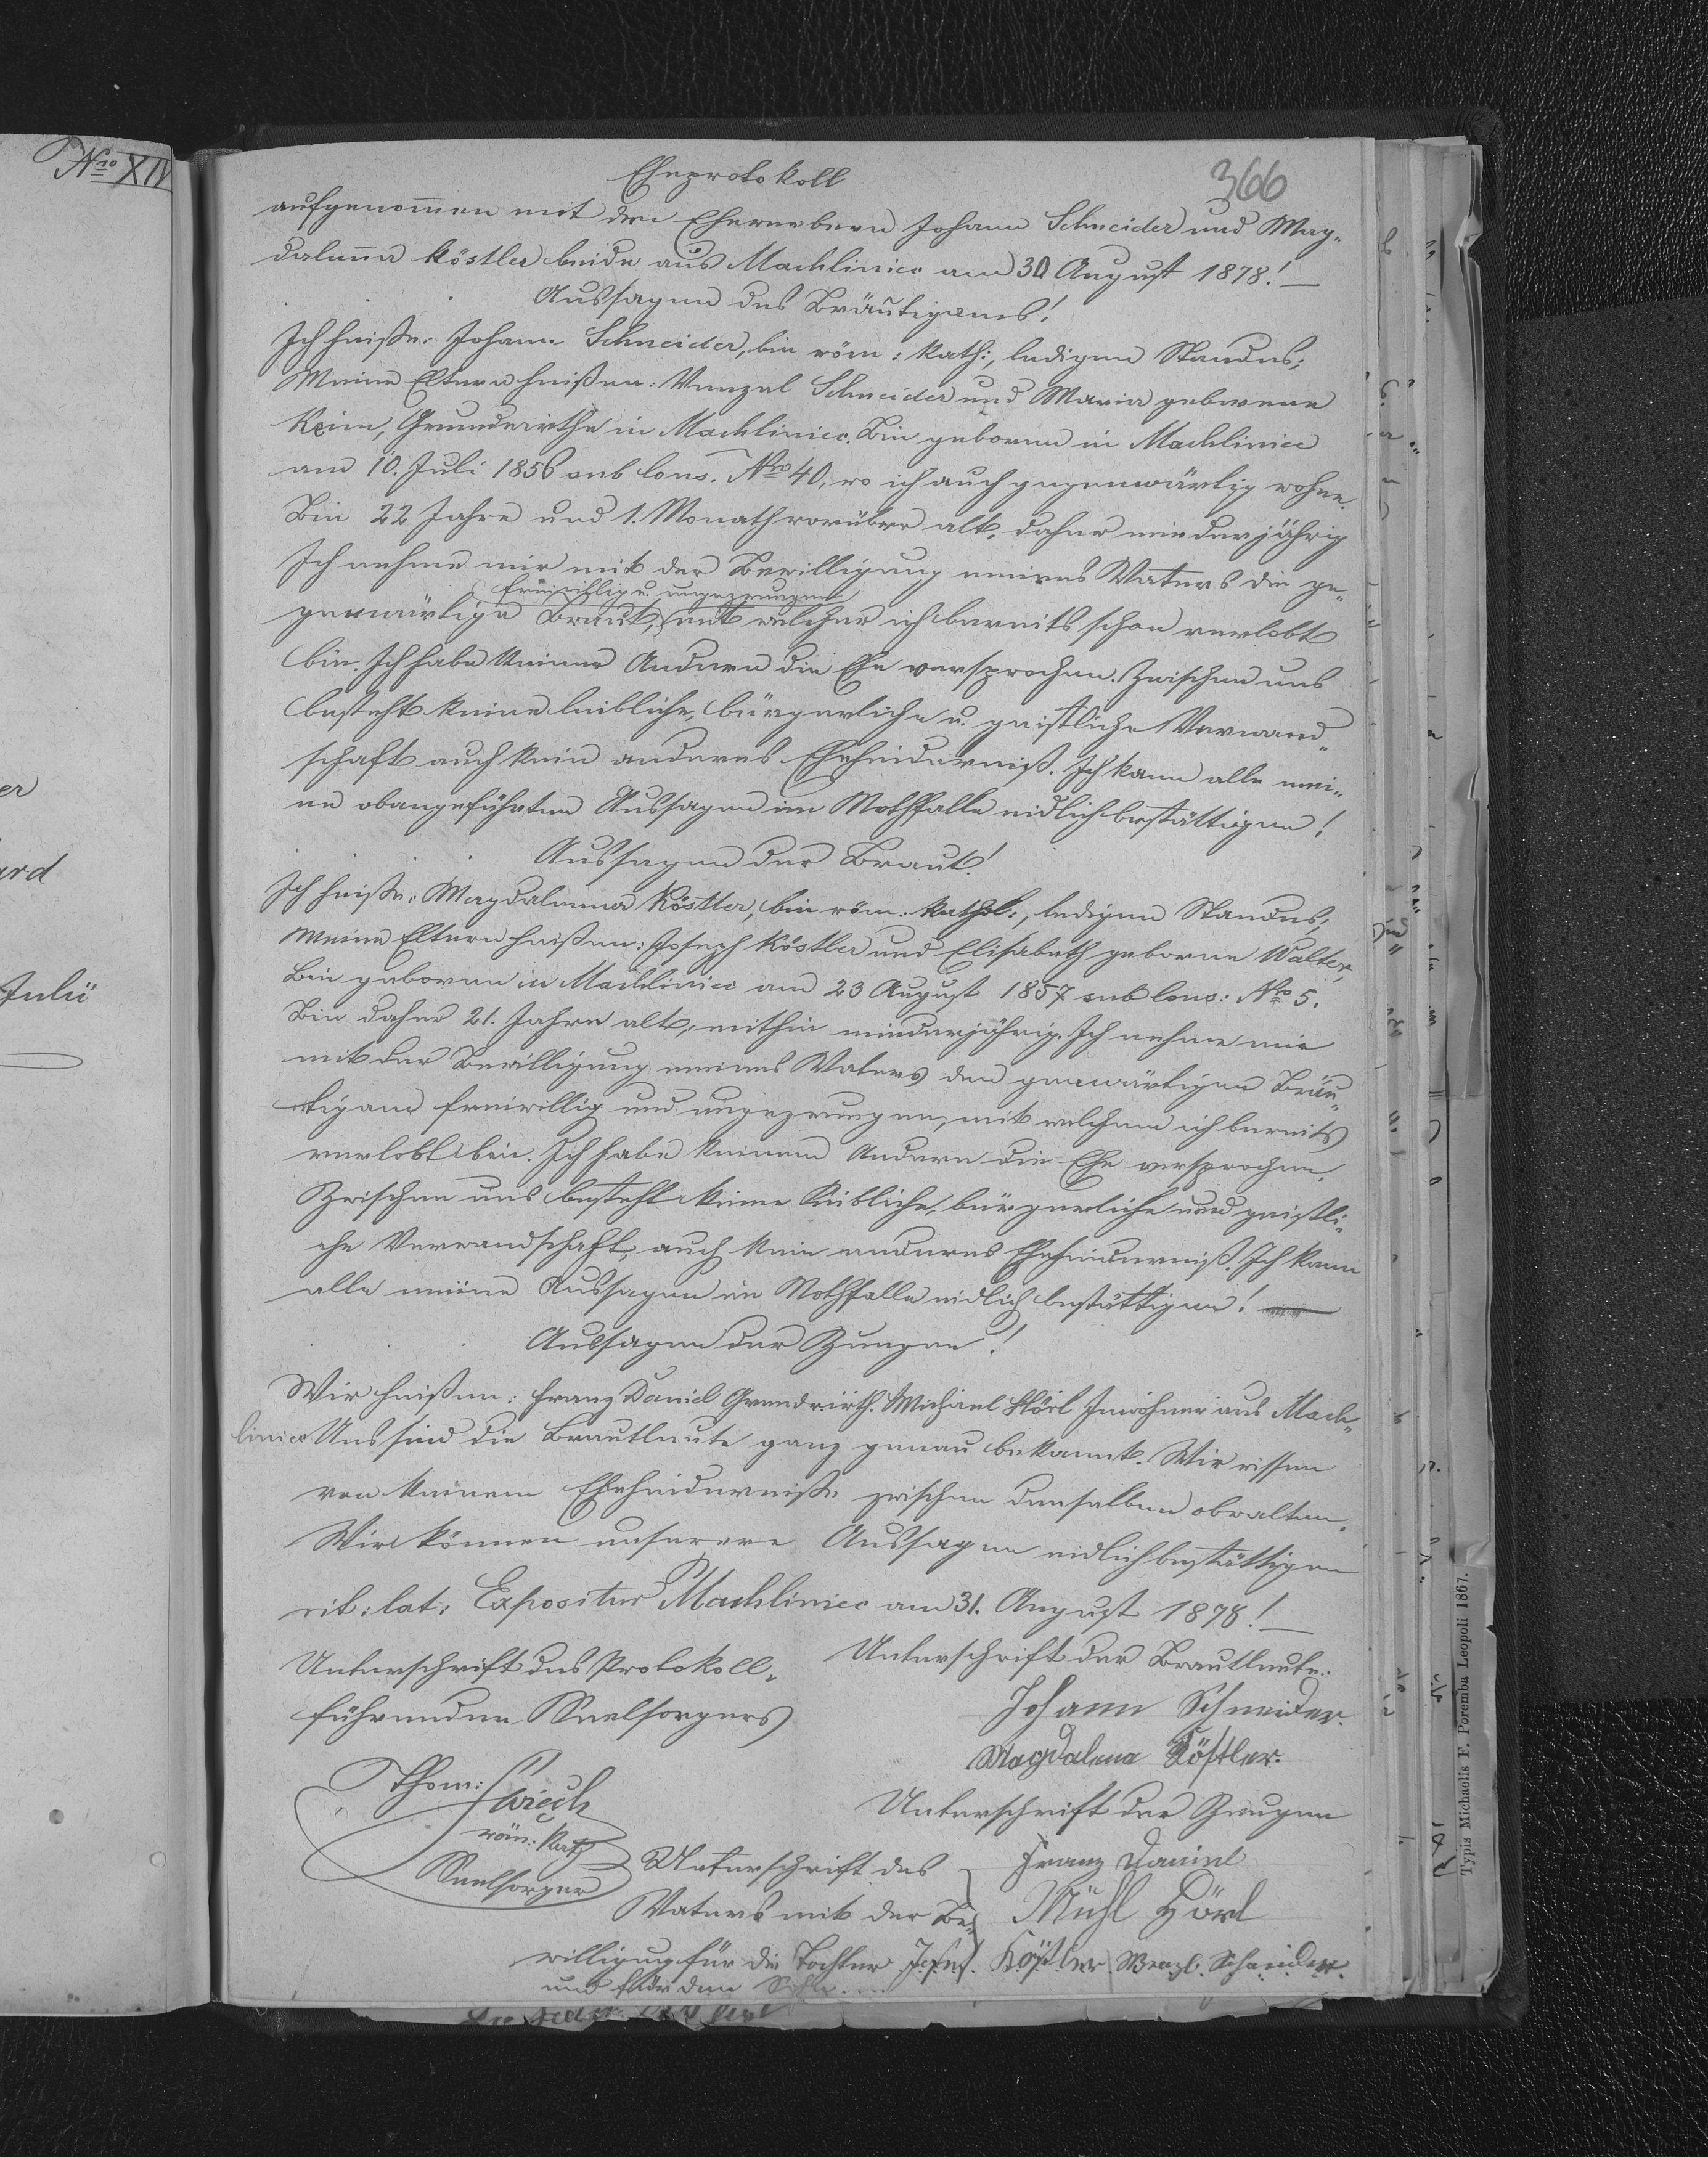 Nro XIV
366
Eheprotokoll
aufgenommen mit den Ehewerbern Johann Schneider und Mag„
dalenna Köstler beide aus Machliniec am 30 August 1878!—
Aussagen des Bräutigams!
Ich heiße: Johann Schneider, bin röm: kath:, ledigen Standes;
Meine Eltern heißen: Wenzel Schneider und Maria geborene
Keim, Grundwirthe in Machliniec. Bin geboren in Machliniec
am 10. Juli 1856 sub Cons. Nro 40, wo ich auch gegenwärtig wohne.
Bin 22 Jahre und 1. Monath vorüber alt, daher minderjährig
Ich nehme mir mit der Bewilligung meines Vaters die ge„
freiwillig u. ungezwungen
genwärtige Braut, mit welcher ich bereits schon verlobt
bin. Ich habe keiner Andern die Ehe versprochen. Zwischen uns
besteht keine leibliche, bürgerliche u. geistliche Verwand„
schaft auch kein anderes Ehehinderniß. Ich kann alle mei„
ne obangeführten Aussagen im Nothfalle eidlich bestättigen!
Aussagen der Braut!
Ich heiße: Magdalenna Köstler, bin röm: kathol:, ledigen Standes;
Meine Eltern heißen: Joseph Köstler und Elisabeth geborne Walter,
Bin geboren in Machliniec am 23 August 1857 sub Cons: Nro 5.
Bin daher 21. Jahre alt, mithin minderjährig. Ich nehme mir
mit der Bewilligung meines Vaters den genwärtigen Bräu„
tigam freiwillig und ungezwungen, mit welchem ich bereits
verlobt bin. Ich habe keinem Andern die Ehe versprochen,
Zwischen uns besteht keine Leibliche, bürgerliche und geistli„
che Verwandschaft, auch kein anderes Ehehinderniß. Ich kann
alle meine Aussagen im Nothfalle eidlich bestättigen!
Aussagen der Zeugen!
Wir heißen: Franz Daniel Grundwirth. Michael Hörl Inwohner aus Mach„
liniec Uns sind die Brautleute ganz genau bekannt. Wir wissen
von keinem Ehehinderniße zwischen denselben obwalten.
Wir können unserere Aussagen eidlich bestättigen
rit: lat: Expositur Machliniec am 31. August 1878!—
Unterschrift des Protokoll„
führenden Seelsorgers
Unterschrift der Brautleute:
Johann Schneider.
Magdalena Köstler.
Thom:
röm: kath
Seelsorger
Unterschrift der Zeugen
Franz Daniel
Michl Hörl
Unterschrift des
Vaters mit der Be„
willigung für die Tochter Josef. Köstler. Wenzl. Schneider.
und für den Sohn....
er
ard
Julii
Typis Michaelis F. Poremba Leopoli 1867.